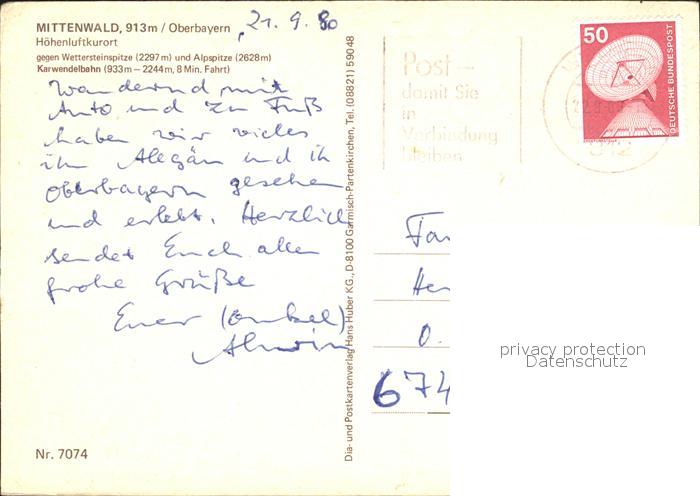 MITTENWALD, 913m / Oberbayern
21.9.80
Höhenluftkurort
gegen Wettersteinspitze (2297m) und Alpspitze (2628m)
Karwendelbahn (933m – 2244m, 8 Min. Fahrt)
Wandernd mit
Auto und zu Fuß
haben wir vieles
im Allgäu und in
Oberbayern gesehen
und erlebt. Herzlich
sendet Euch allen
frohe Grüße
Euer (Onkel)
Alwin
Nr. 7074
Dia- und Postkartenverlag Hans Huber KG., D-8100 Garmisch-Partenkirchen, Tel. (08821) 59048
Post –
damit Sie
in
Verbindung
bleiben
50
DEUTSCHE BUNDESPOST
Fa
He
O.
674
privacy protection
Datenschutz